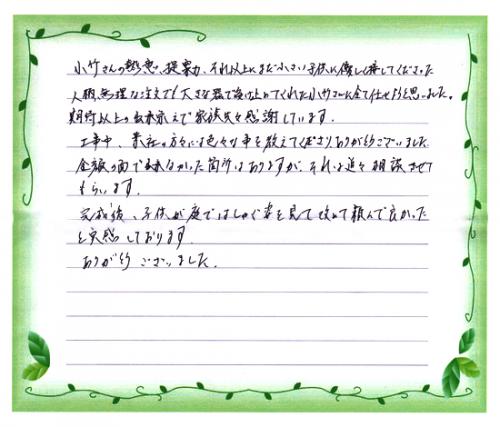 小竹さんの熱意、提案力、それ以上にまだ小さい子供に優しく接してくださった
人柄、無理な注文でも大きな器で受け止めてくれた小竹さんに全て任せようと思いました。
期待以上の出来栄えで家族共々感謝しています。
工事中、業社の方々には色々な事を教えてくださりありがとうございました
金額の面で出来なかった箇所はありますが、それは追々相談させて
もらいます。
完成後、子供が庭ではしゃぐ姿を見て改めて頼んで良かった
と実感しております。
ありがとうございました。